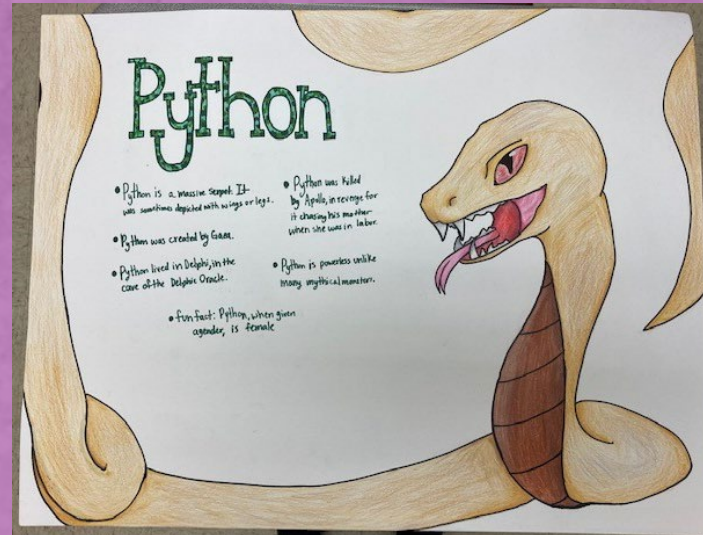 Python
• Python is a massive serpent. It
was sometimes depicted with wings or legs.
• Python was created by Gaea.
• Python lived in Delphi, in the
cave of the Delphic Oracle.
• Python was killed
by Apollo, in revenge for
it chasing his mother
when she was in labor.
• Python is powerless unlike
many mythical monsters.
• fun fact: Python, when given
a gender, is female